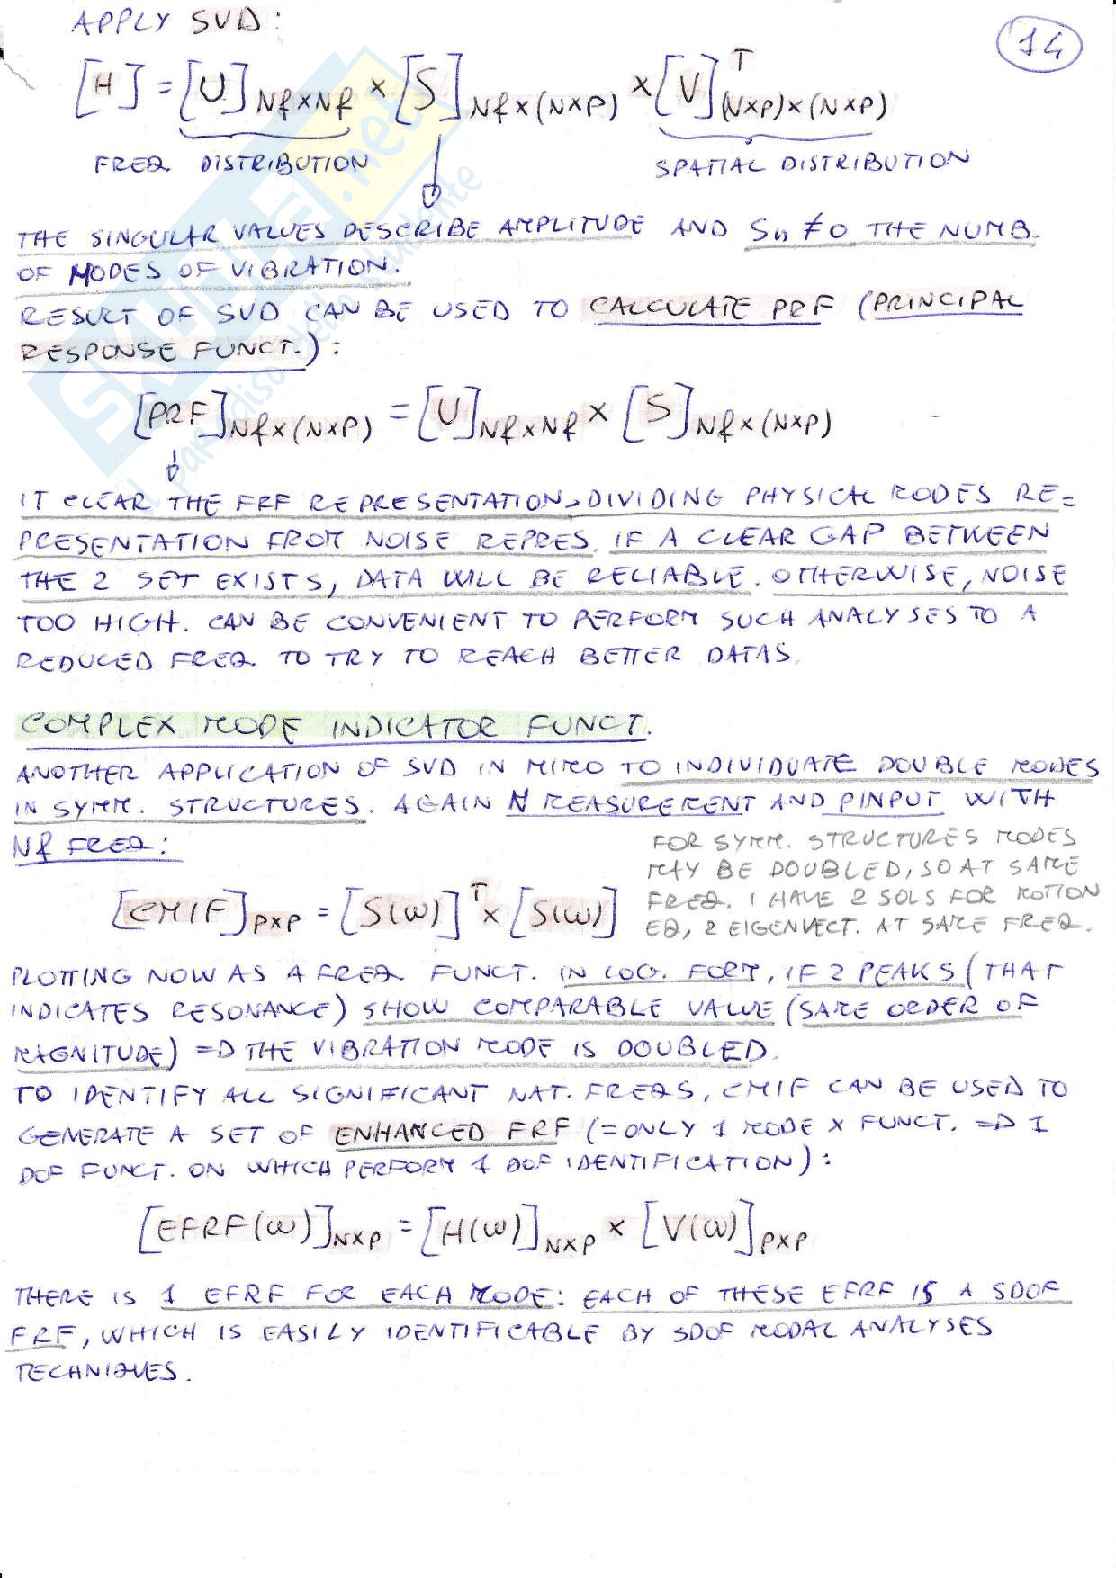 APPLY SVD:
14
[H] = [U]Nf×Nf × [S]Nf×(N×P) × [V]T(N×P)×(N×P)
FREQ. DISTRIBUTION SPATIAL DISTRIBUTION
THE SINGULAR VALUES DESCRIBE AMPLITUDE AND Sn ≠ 0 THE NUMB.
OF MODES OF VIBRATION.
RESULT OF SVD CAN BE USED TO CALCULATE PRF (PRINCIPAL
RESPONSE FUNCT.):
[PRF]Nf×(N×P) = [U]Nf×Nf × [S]Nf×(N×P)
IT CLEAR THE FRF REPRESENTATION, DIVIDING PHYSICAL MODES RE=
PRESENTATION FROM NOISE REPRES. IF A CLEAR GAP BETWEEN
THE 2 SET EXISTS, DATA WILL BE RELIABLE. OTHERWISE, NOISE
TOO HIGH. CAN BE CONVENIENT TO PERFORM SUCH ANALYSES TO A
REDUCED FREQ. TO TRY TO REACH BETTER DATAS.
COMPLEX MODE INDICATOR FUNCT.
ANOTHER APPLICATION OF SVD IN MIMO TO INDIVIDUATE DOUBLE MODES
IN SYMM. STRUCTURES. AGAIN N MEASUREMENT AND P INPUT WITH
Nf FREQ:
FOR SYMM. STRUCTURES MODES
MAY BE DOUBLED, SO AT SAME
FREQ. I HAVE 2 SOLS FOR MOTION
EQ, 2 EIGENVECT. AT SAME FREQ.
[CMIF]P×P = [S(ω)]T × [S(ω)]
PLOTTING NOW AS A FREQ. FUNCT. IN LOG. FORM, IF 2 PEAKS (THAT
INDICATES RESONANCE) SHOW COMPARABLE VALUE (SAME ORDER OF
MAGNITUDE) => THE VIBRATION MODE IS DOUBLED.
TO IDENTIFY ALL SIGNIFICANT NAT. FREQS, CMIF CAN BE USED TO
GENERATE A SET OF ENHANCED FRF (= ONLY 1 MODE × FUNCT. => 1
DOF FUNCT. ON WHICH PERFORM 1 DOF IDENTIFICATION):
[EFRF(ω)]N×P = [H(ω)]N×P × [V(ω)]P×P
THERE IS 1 EFRF FOR EACH MODE: EACH OF THESE EFRF IS A SDOF
FRF, WHICH IS EASILY IDENTIFICABLE BY SDOF MODAL ANALYSES
TECHNIQUES.